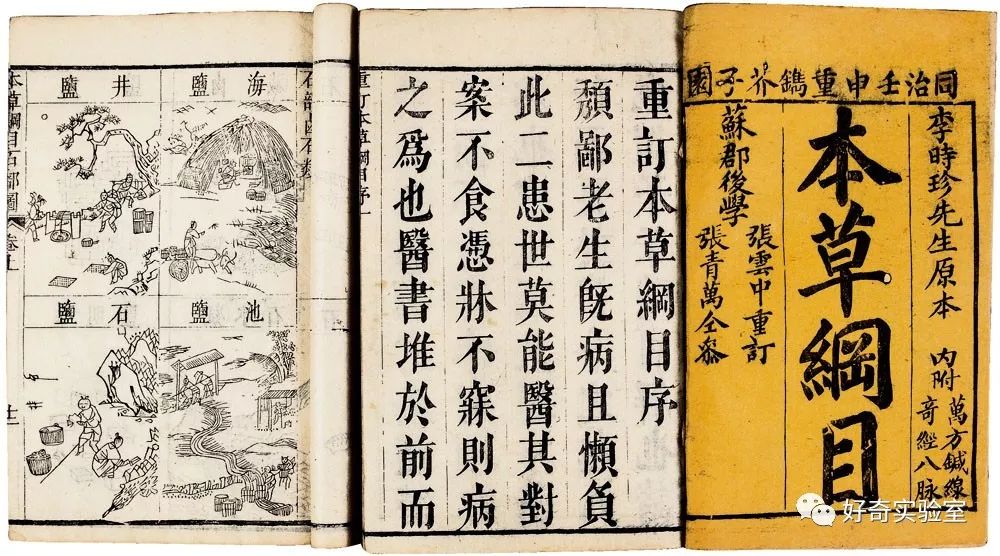 同治壬申重鐫芥子園
李時珍先生原本
內附萬方鍼線
竒經八脉
本草綱目
張雲中重訂
蘇郡後學
張青萬仝叅
重訂本草綱目序
頽鄙老生旣病且懶負
此二患世莫能醫其對
案不食憑牀不寐則病
之爲也醫書堆於前而
重訂本草綱目序
一
海鹽
井鹽
池鹽
石鹽
本草綱目石部圖
好奇实验室